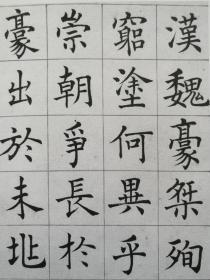 漢魏豪桀殉
窮塗何異乎
崇朝爭長於
豪出於未